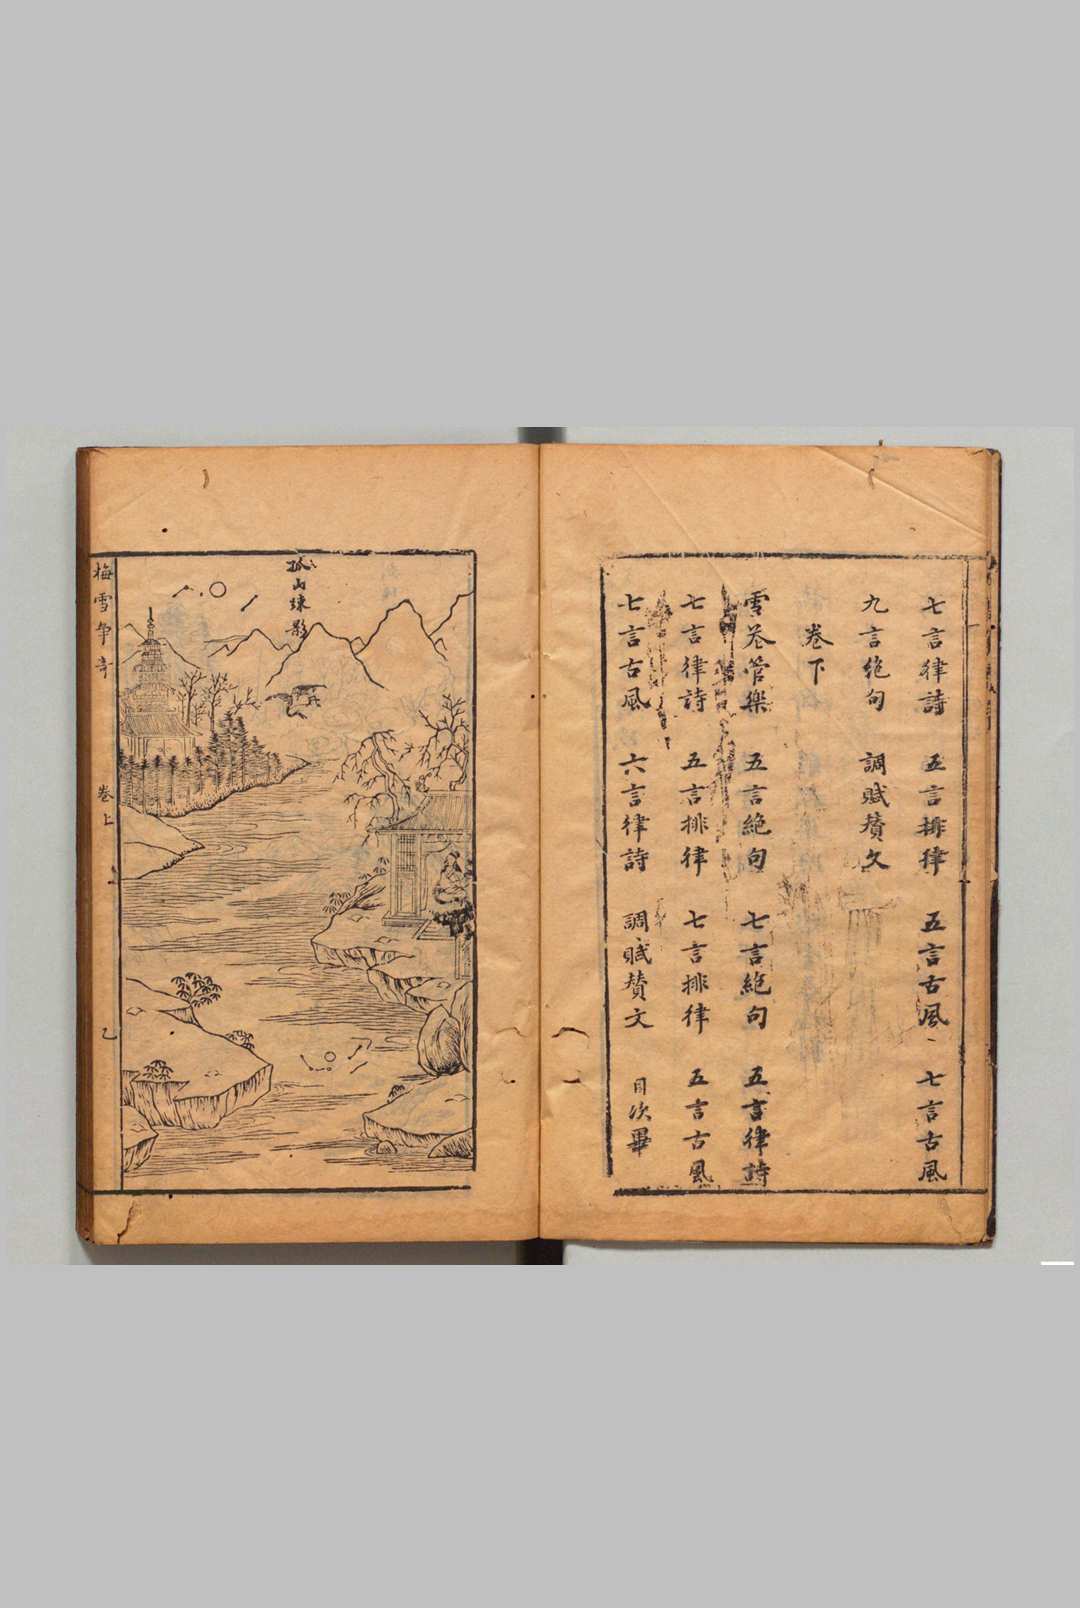 七言律詩　五言排律　五言古風　七言古風
九言絶句　調賦賛文
卷下
雪卷管樂　五言絶句　七言絶句　五言律詩
七言律詩　五言排律　七言排律　五言古風
七言古風　六言律詩　調賦賛文　目次畢
孤山疎影
梅雪争奇　卷上　乙